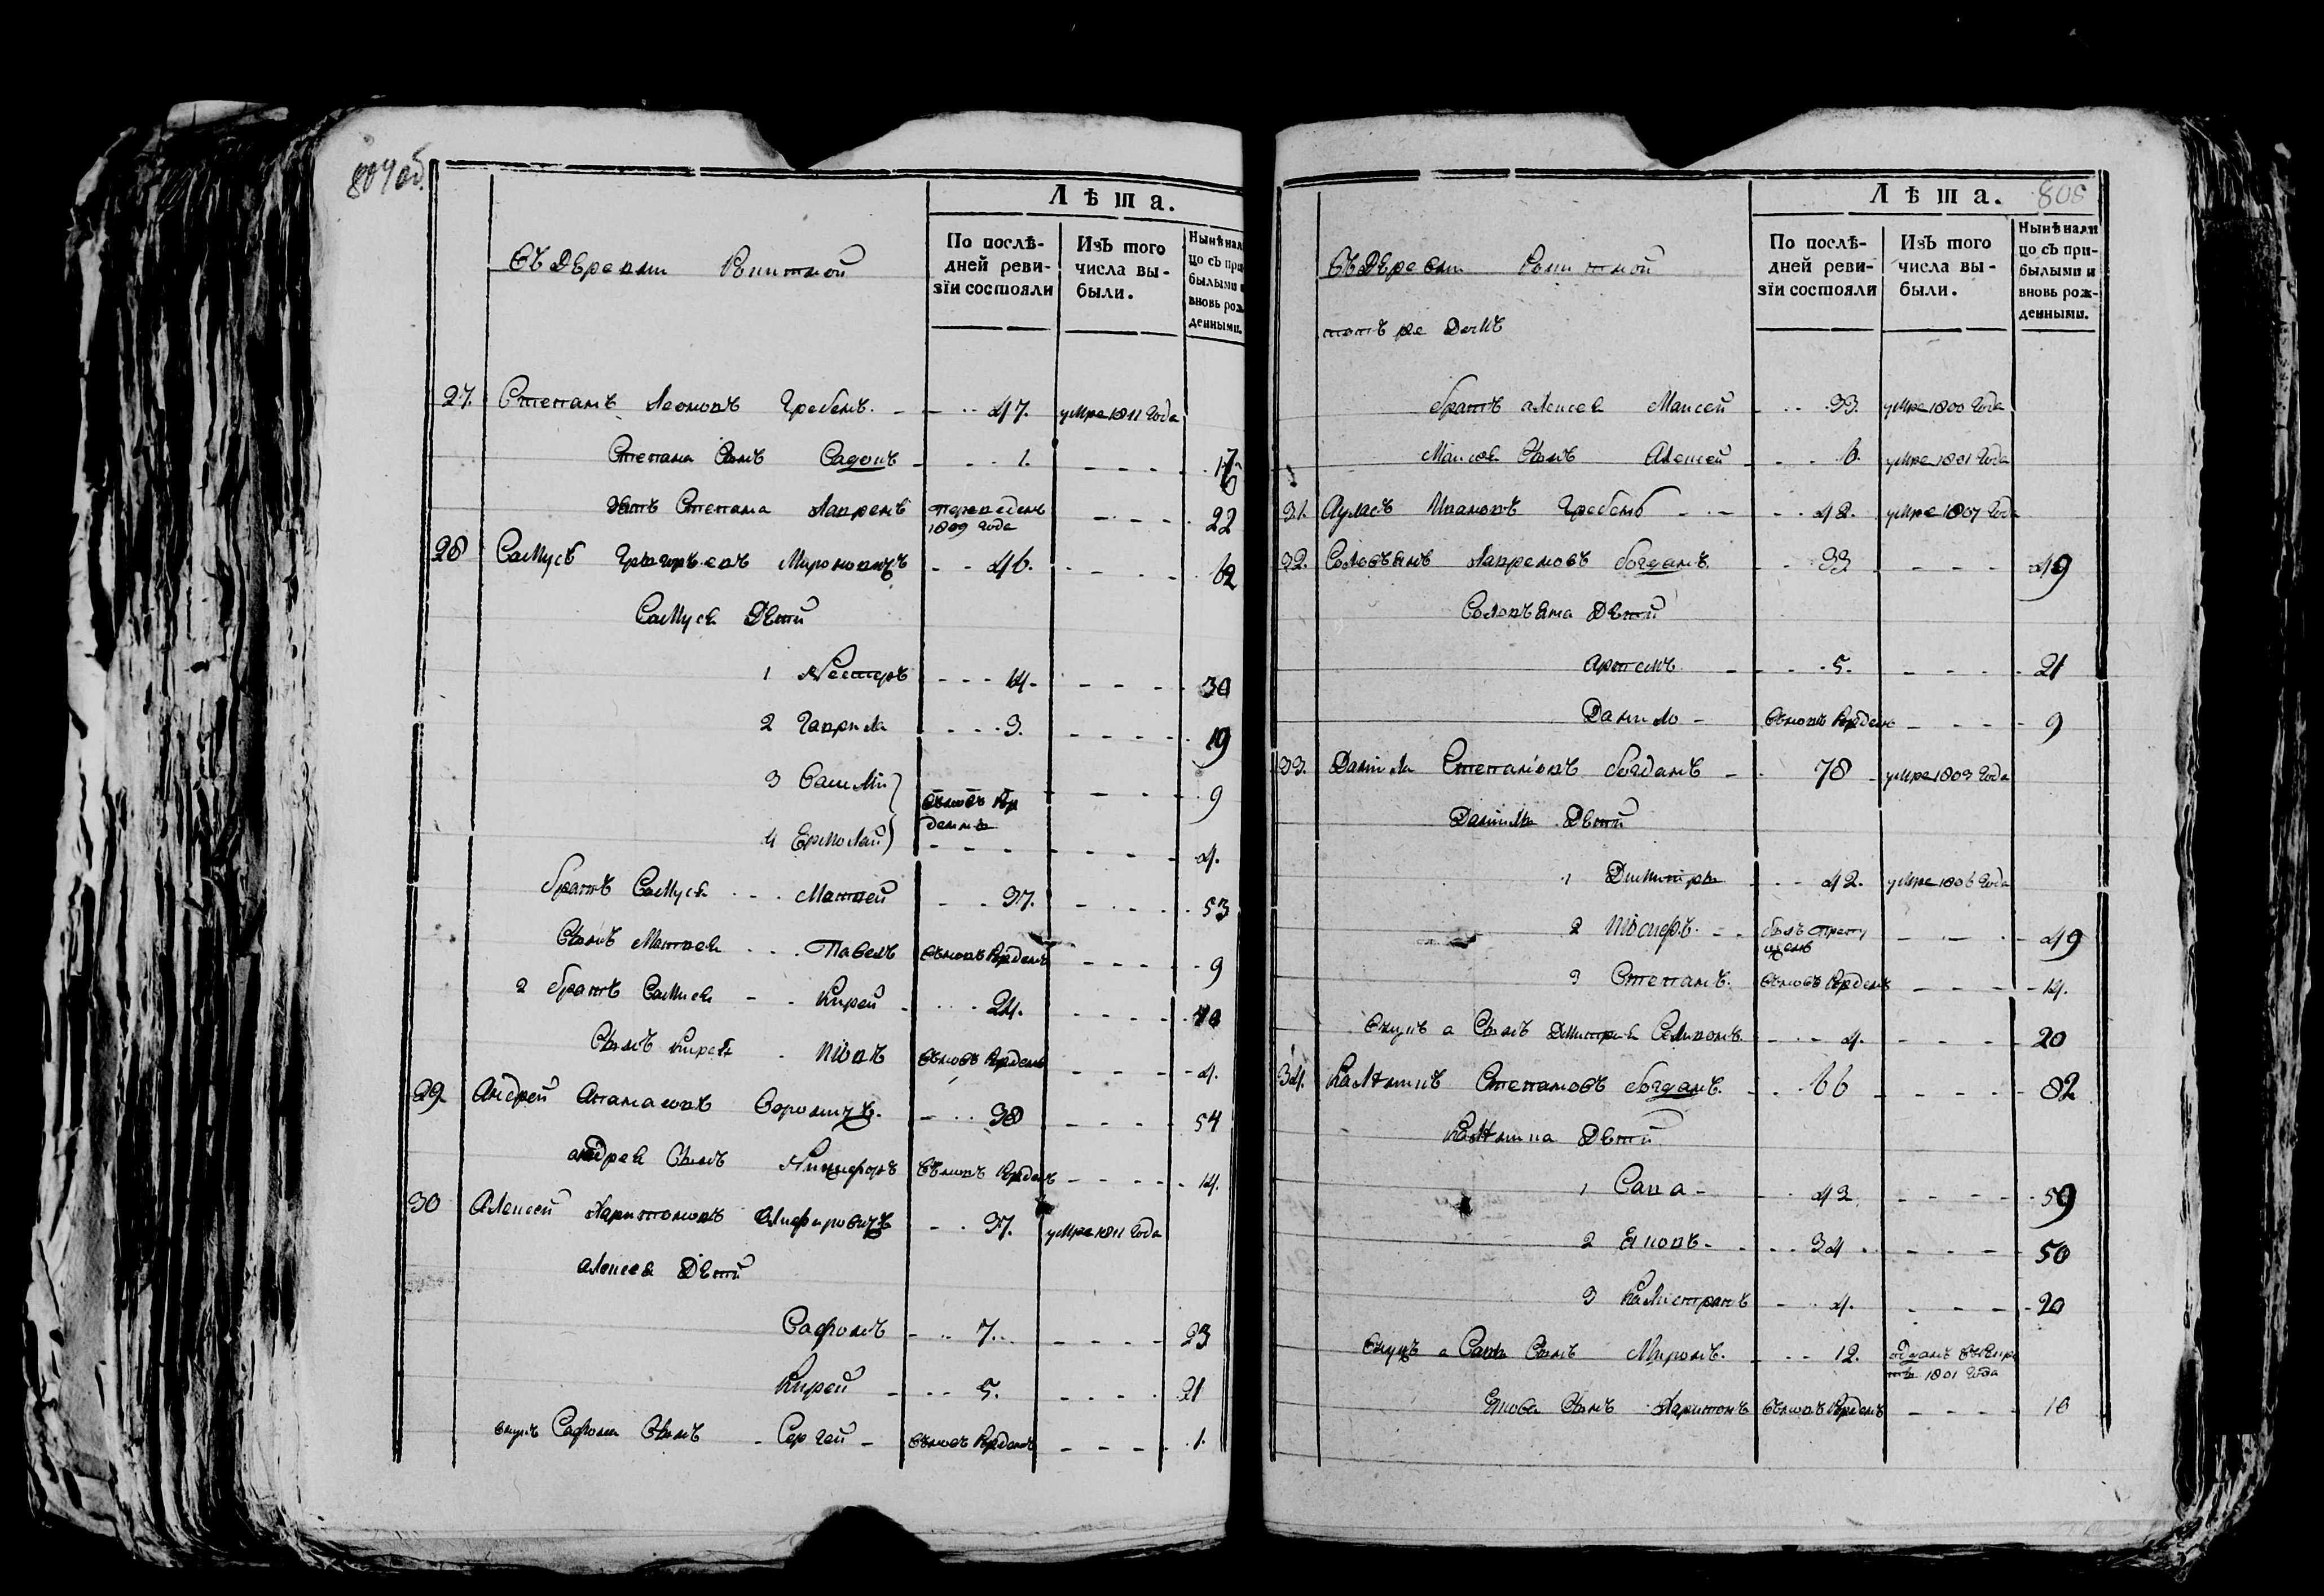 804 об.
Лѣта.
Въ деревни Ракитной
По послѣ-
дней реви-
зіи состояли
Изъ того
числа вы-
были.
Нынѣ нали
цо съ при
былыми и
вновь рож
денными.
27. Степанъ Леоновъ Гребень. 47. умре 1811 Года
Степана Сынъ 1. 17
Зять Степана Лавренъ переведенъ 1809 года 22
28 Самусь Григорьевъ Мироновичъ 46. 62
Самуся Дѣти
1 Нестеръ 14. 30
2 Гаврила 3. 19
3 9
въновъ рож
денны
4 Ермолай 4.
братъ Самуся Матвей 37. 53
Сынъ Матвея Павелъ въновъ рожденъ 9
2 братъ Самуся Кирей 24. 40
Сынъ Кирея Іовъ въновъ рожденъ 4.
29 Андрей Апанасовъ 38 54
андрея Сынъ Никифоръ въновъ рожденъ 14.
30 Алексей Харитоновъ 37. умре 1811 Года
алексея Дѣти
Сафонъ 7. 23
Кирей 5. 21
внукъ Сафона Сынъ Сергей въновъ рожденъ 1.
808
Лѣта.
Въ деревни Ракитной
По послѣ-
дней реви-
зіи состояли
Изъ того
числа вы-
были.
Нынѣ нали
цо съ при-
былыми и
вновь рож-
денными.
тотъ же домъ
братъ алексея Моисей 33. умре 1800 Года
Моисея Сынъ Алексей 6. умре 1801 Года
31. Ивановъ Гребень 42. умре 1807 Года
32. Лавреновъ богданъ 33 49
Дѣти
Артемъ 5. 21
Данило въновъ рожденъ 9
33. Данила Степановъ богданъ 78 умре 1803 Года
Данила Дѣти
1 Димитри 42. умре 1806 Года
2 Іосифъ. былъ пропу
щенъ 49
3 Степанъ. въновъ рожденъ 14.
внукъ а Сынъ Дмитрия 4. 20
34. Степановъ богданъ. 66 82
Дѣти
1 Сава 43 59
2 Яковъ 34 50
3 Калистратъ 4. 20
внукъ а Савы Сынъ Миронъ. 12. отданъ въ рекру
ты 1801 Года
Якова Сынъ Харитонъ въновъ рожденъ 10